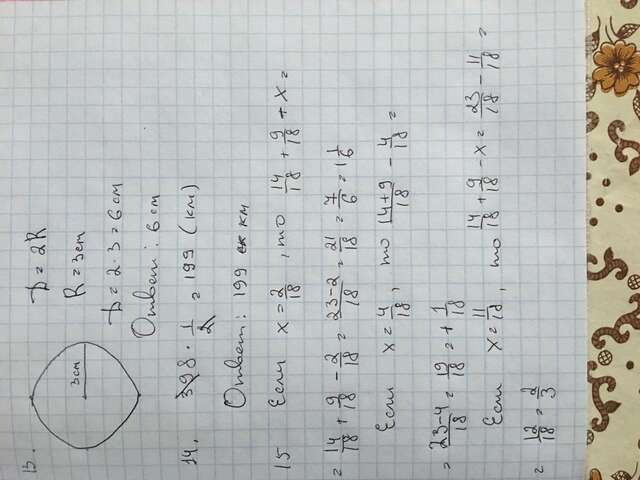 13.
3 cm
D = 2R
R = 3 cm
D = 2 · 3 = 6 cm
Ответ: 6 cm
14. 398 · 1/2 = 199 (км)
Ответ: 199 км
15 Если x = 2/18, то 14/18 + 9/18 + x =
= 14/18 + 9/18 - 2/18 = 23-2/18 = 21/18 = 7/6 = 1 1/6
Если x = 4/18, то 14+9/18 - 4/18 =
= 23-4/18 = 19/18 = + 1/18
Если x = 11/18, то 14/18 + 9/18 - x = 23/18 - 11/18 =
= 12/18 = 2/3